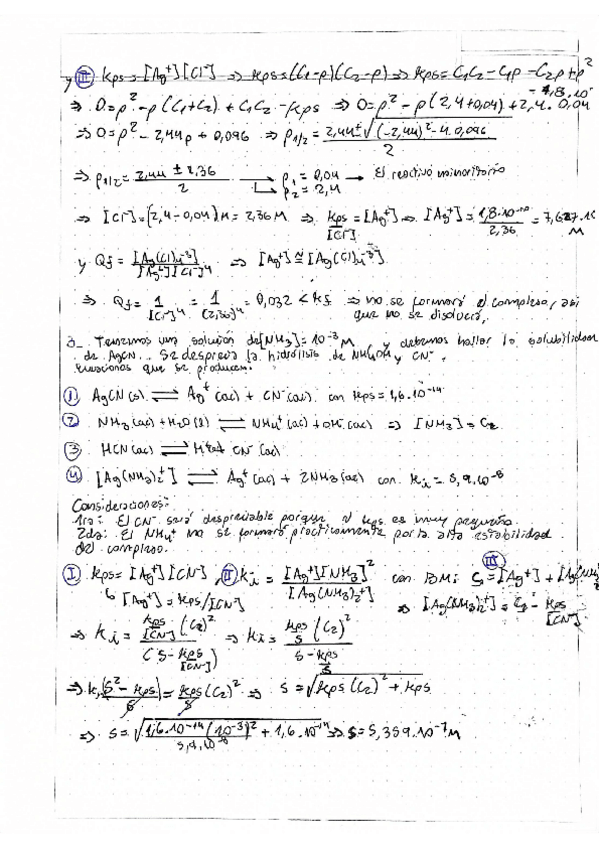 y III Kps = [Ag⁺][Cl⁻] ⇒ Kps = (C₁-p)(C₂-p) ⇒ Kps = C₁C₂ - C₁p - C₂p + p²
⇒ 0 = p² - p(C₁+C₂) + C₁C₂ - Kps ⇒ 0 = p² - p(2,4+0,04) + 2,4·0,04 - 1,8·10
⇒ 0 = p² - 2,44p + 0,096 ⇒ p₁/₂ = 2,44 ± √((-2,44)² - 4·0,096) / 2
⇒ p₁/₂ = 2,44 ± 2,36 / 2 → p₁ = 0,04 → El reactivo minoritario
p₂ = 2,4
⇒ [Cl⁻] = (2,4-0,04)M = 2,36M ⇒ Kps / [Cl⁻] = [Ag⁺] ⇒ [Ag⁺] = 1,8·10⁻¹⁰ / 2,36 = M
y Qf = [Ag(Cl)₄⁻³] / [Ag⁺][Cl⁻]⁴ ⇒ [Ag⁺] ≅ [Ag(Cl)₄⁻³]
⇒ Qf = 1 / [Cl⁻]⁴ = 1 / (2,36)⁴ = 0,032 < Kf ⇒ no se formará el complejo, así
que no se disolverá.
3_ Tenemos una solución de [NH3] = 10⁻³ M, y debemos hallar la solubilidad
de AgCN. Se desprecia la hidrólisis de NH4OH y CN⁻.
Ecuaciones que se producen:
1 AgCN(s) ⇌ Ag⁺(ac) + CN⁻(ac) con Kps = 1,6·10⁻¹⁴
2 NH3(ac) + H2O(l) ⇌ NH4⁺(ac) + OH⁻(ac) ⇒ [NH3] = C₂
3 HCN(ac) ⇌ CN⁻(ac)
4 [Ag(NH3)₂⁺] ⇌ Ag⁺(ac) + 2NH3(ac) con Ki = 5,9·10⁻⁸
Consideraciones:
1ra: El CN⁻ será despreciable porque el Kps es muy pequeño.
2da: El NH4⁺ no se formará prácticamente por la alta estabilidad
del complejo.
I Kps = [Ag⁺][CN⁻], II Ki = [Ag⁺][NH3]² / [Ag(NH3)₂⁺] con BMi III S = [Ag⁺] + [Ag(NH3)
ó [Ag⁺] = Kps/[CN⁻] ⇒ [Ag(NH3)₂⁺] = S - Kps / [CN⁻]
⇒ Ki = Kps/[CN⁻] (C₂)² / (S - Kps/[CN⁻]) ⇒ Ki = Kps/S (C₂)² / S - Kps/S
⇒ Ki (S² - Kps)/S = Kps/S (C₂)² ⇒ S = √(Kps(C₂)² + Kps
⇒ S = √(1,6·10⁻¹⁴ (10⁻³)² / 5,9·10⁻⁸ + 1,6·10⁻¹⁴ ⇒ S = 5,359·10⁻⁷ M